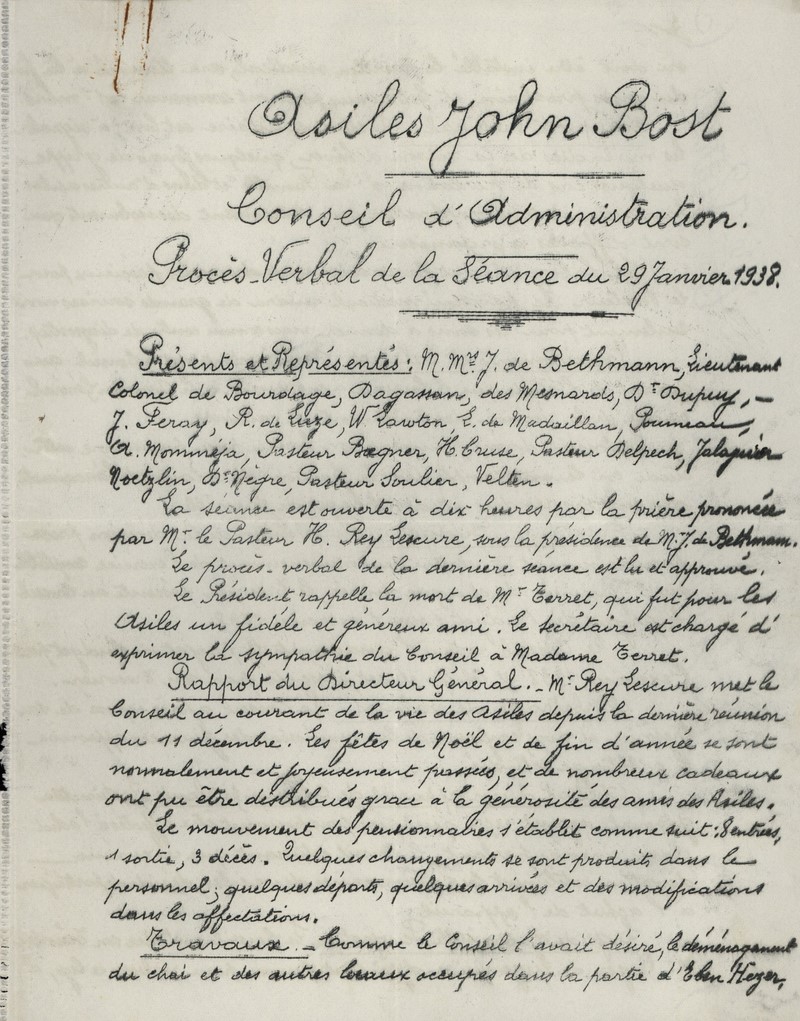 Asiles John Bost
Conseil d'Administration.
Procès-Verbal de la Séance du 29 Janvier 1938.
Présents et Représentés: M.Mrs J. de Bethmann, Lieutenant
Colonel de Bourdage, Dagassan, des Mesnards, Dr Dupuy, -
J. Feray, R. de Luze, W. Lawton, L. de Madaillan, Poumeau,
A. Momméja, Pasteur Bœgner, H. Cruse, Pasteur Delpech, Jalaguier
Noetzlin, Dr Nègre, Pasteur Soulier, Velten.
La séance est ouverte à dix heures par la prière prononcée
par Mr le Pasteur H. Rey Lescure, sous la présidence de M. J. de Bethmann.
Le procès-verbal de la dernière séance est lu et approuvé.
Le Président rappelle la mort de Mr Terret, qui fut pour les
Asiles un fidéle et généreux ami. Le secrétaire est chargé d'
exprimer la sympathie du Conseil à Madame Terret.
Rapport du Directeur Général. - Mr Rey Lescure met le
Conseil au courant de la vie des Asiles depuis la dernière réunion
du 11 décembre. Les fêtes de Noël et de fin d'année se sont
normalement et joyeusement passées, et de nombreux cadeaux
ont pu être distribués grace à la générosité des amis des Asiles.
Le mouvement des pensionnaires s'établit comme suit: 8 entrées,
1 sortie, 3 décès. Quelques changements se sont produits dans le
personnel; quelques départs, quelques arrivées et des modifications
dans les affectations.
Travaux. - Comme le Conseil l'avait désiré, le déménagement
du chai et des autres locaux occupés dans la partie d'Eben Hézer,